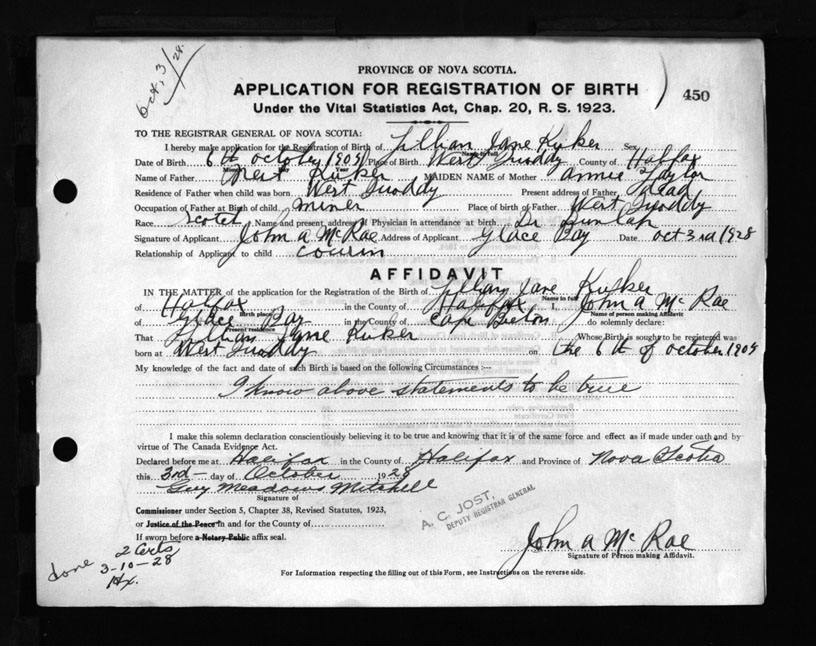 Oct, 3/28.
PROVINCE OF NOVA SCOTIA.
APPLICATION FOR REGISTRATION OF BIRTH
450
Under the Vital Statistics Act, Chap. 20, R. S. 1923.
TO THE REGISTRAR GENERAL OF NOVA SCOTIA:
I hereby make application for the Registration of Birth of Lillian Jane Kuker Sex
Name in full
Date of Birth 6th October 1909 Place of Birth West Quoddy County of Halfax
Name of Father Kuker MAIDEN NAME of Mother Annie Taylor
Residence of Father when child was born West Quoddy Present address of Father Dead
Occupation of Father at Birth of child Miner Place of birth of Father West Quoddy
Race Scotch Name and present address of Physician in attendance at birth Dr Dunlap
Signature of Applicant John A McRae Address of Applicant Glace Bay Date Oct 3rd 1928
Relationship of Applicant to child Cousin
AFFIDAVIT
IN THE MATTER of the application for the Registration of the Birth of Lillian Jane Kuker
Name in full
of Halfax in the County of Halifax I, John A McRae
Birth place Name of person making Affidavit
of Glace Bay in the County of Cape Breton do solemnly declare:
Present residence
That Lillian Jane Kuker Whose Birth is sought to be registered was
born at West Quoddy on the 6th of October 1909
My knowledge of the fact and date of such Birth is based on the following Circumstances :—
I know above statements to be true
I make this solemn declaration conscientiously believing it to be true and knowing that it is of the same force and effect as if made under oath and by
virtue of The Canada Evidence Act.
Declared before me at Halifax in the County of Halifax and Province of Nova Scotia
this 3rd day of October 1928
Guy Meadows Mitchell
Signature of
Commissioner under Section 5, Chapter 38, Revised Statutes, 1923,
A. C. JOST,
DEPUTY REGISTRAR GENERAL
or Justice of the Peace in and for the County of
If sworn before a Notary Public affix seal.
John A McRae
Signature of Person making Affidavit.
done 2 Certs
3-10-28
Hx.
For Information respecting the filling out of this Form, see Instructions on the reverse side.